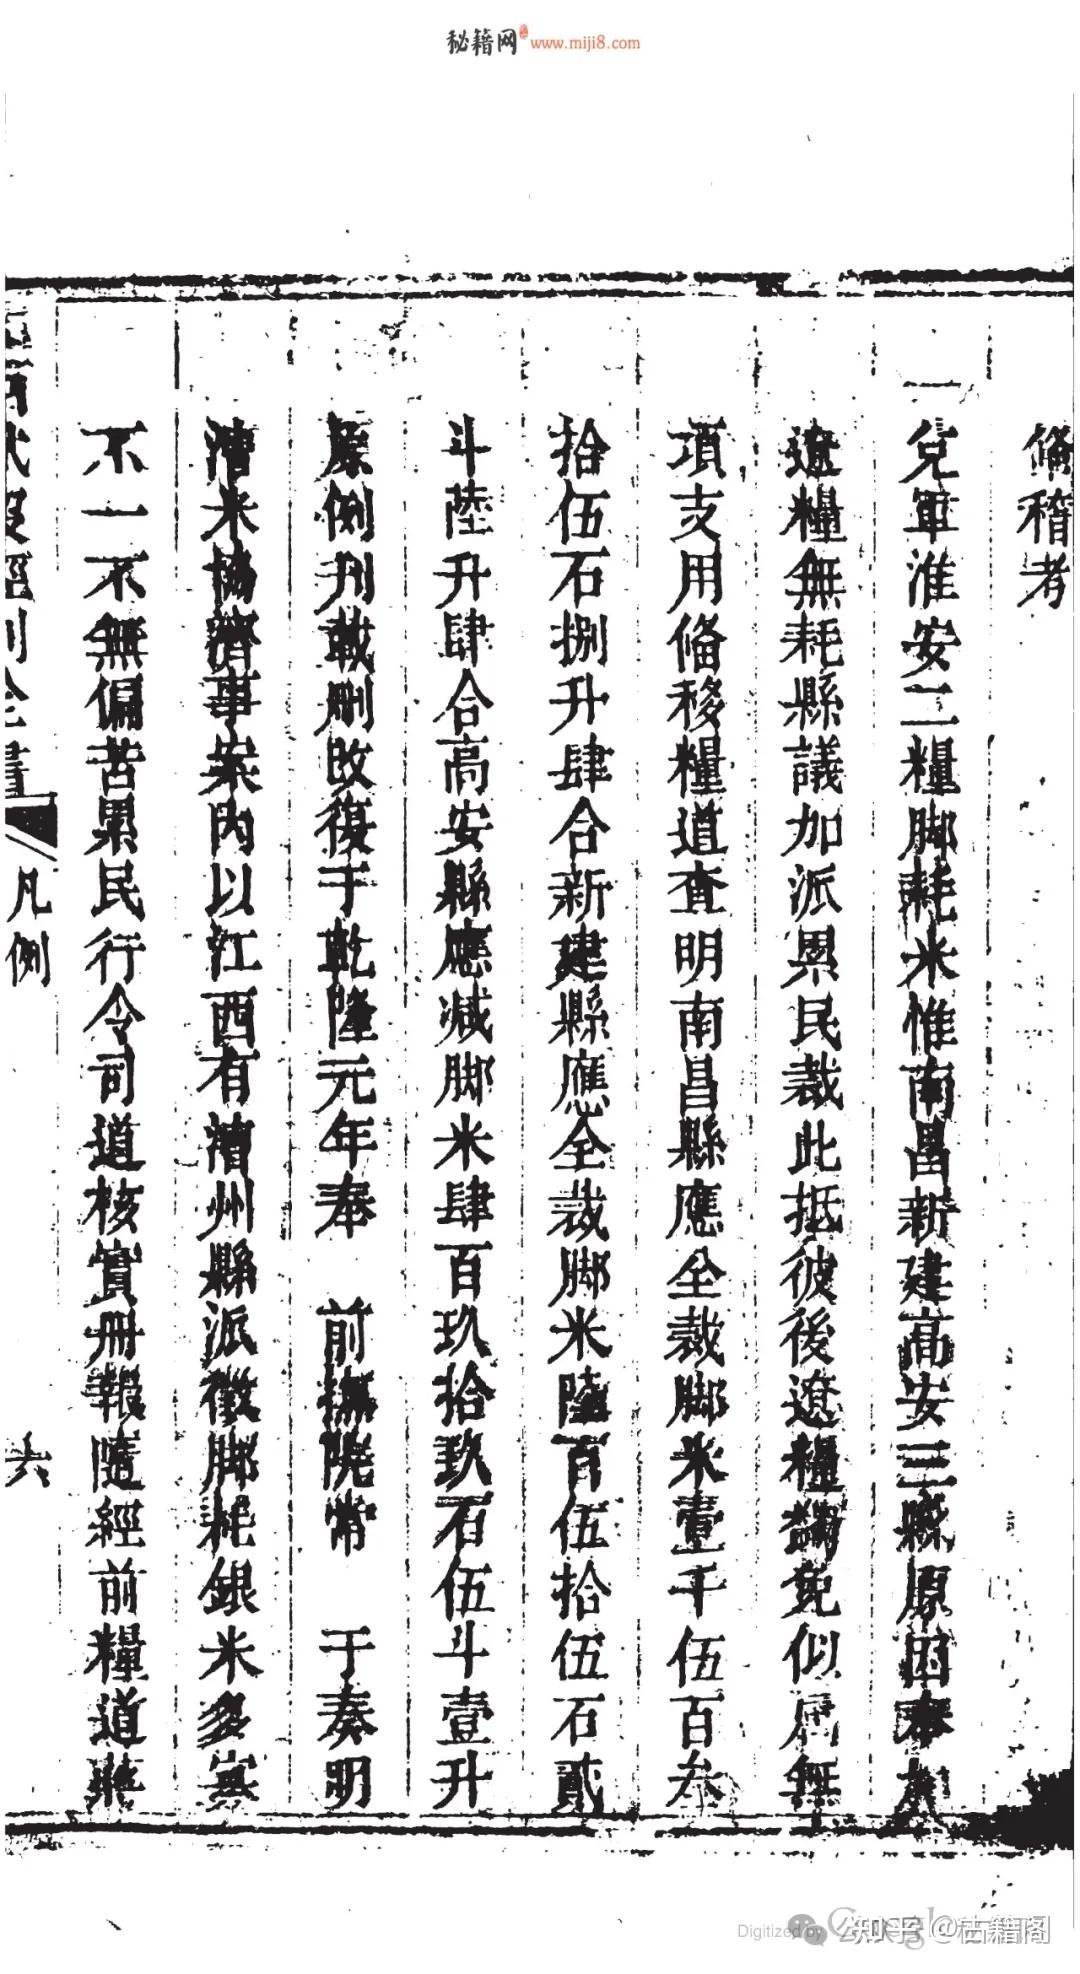 秘籍网 www.miji8.com
偹稽考
一兌軍淮安二糧脚耗米惟南昌新建高安三縣原因奉加
遼糧無耗縣議加派累民裁此抵彼後遼糧蠲免似屬無
項支用偹移糧道查明南昌縣應全裁脚米壹千伍百叁
拾伍石捌升肆合新建縣應全裁脚米陸百伍拾伍石貳
斗陸升肆合高安縣應减脚米肆百玖拾玖石伍斗壹升
原例刋載刪改復于乾隆元年奉 前撫院常 于奏明
漕米協濟事案內以江西有漕州縣派徵脚耗銀米多寡
不一不無偏苦累民行令司道核實冊報隨經前糧道蔣
江西賦役經制全書 凡例 六
Digitized by Google
知乎 @古籍阁